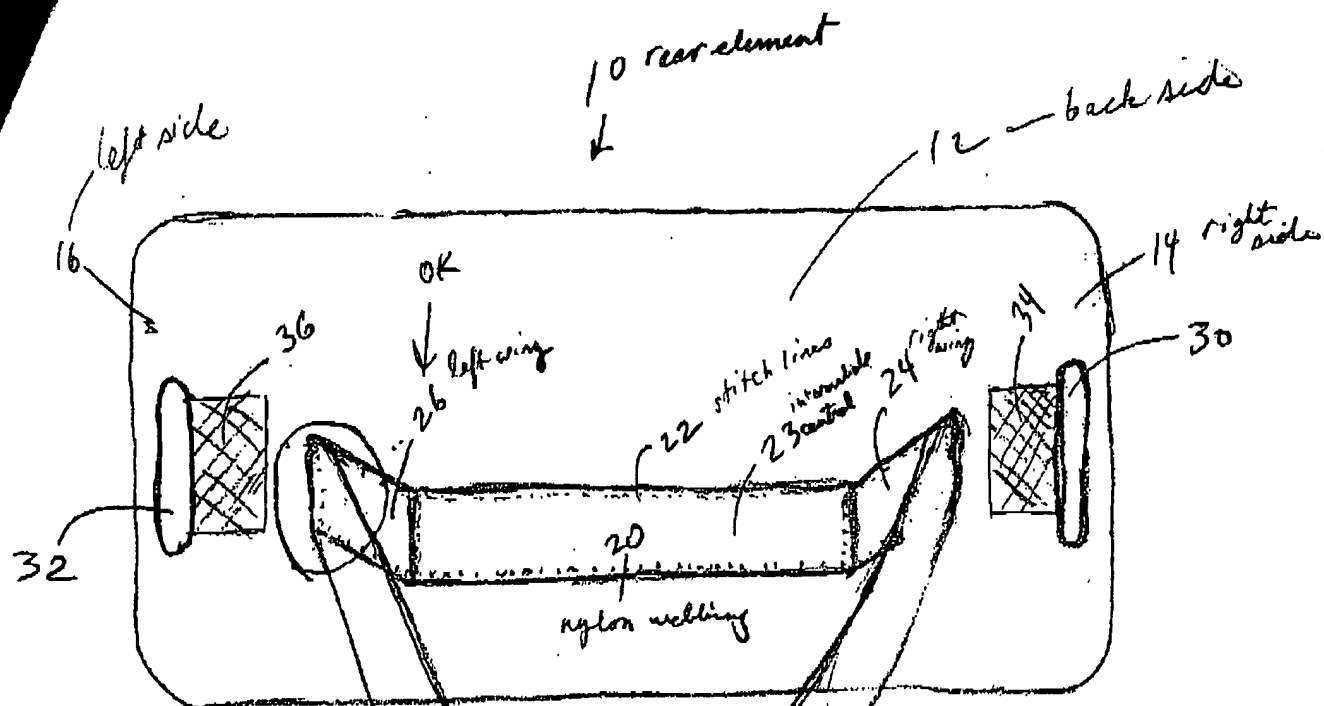 10 rear element
left side
12 — back side
16
14 right
side
OK
36
34
30
left wing
26
22 stitch lines
23
central
24 right
wing
20
32
nylon webbing